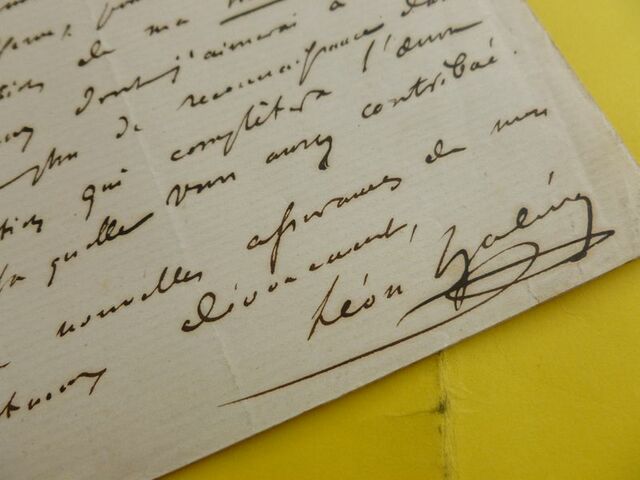 de ma
dont j'aimerai à
de reconnaissance
qui complètera l'œuvre
laquelle vous avez contribué.
nouvelles assurances de mon
dévouement,
Léon Halévy